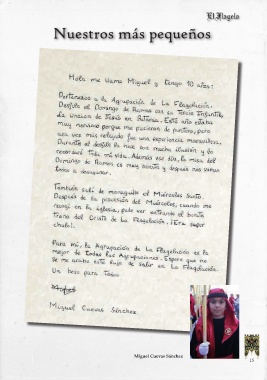 El Flagelo
Nuestros más pequeños
Hola me llamo Miguel y tengo 10 años:
Pertenezco a la Agrupación de La Flagelación.
Desfilo el Domingo de Ramos con su Tercio Infantil,
La Unción de Jesús en Betania. Este año estaba
muy nervioso porque me pusieron de puntero, pero
una vez más relajado fue una experiencia maravillosa.
Durante el desfile lo hice con mucha ilusión y lo
recordaré toda mi vida. Además ese día, la misa del
Domingo de Ramos es muy bonita y después nos vamos
todos a desayunar.
También salí de monaguillo el Miércoles Santo.
Después de la procesión del Miércoles, cuando me
recogí en la iglesia, pude ver entrando el bonito
trono del Cristo de La Flagelación. ¡Era super
chulo!.
Para mí, la Agrupación de La Flagelación es la
mejor de todas las Agrupaciones. Espero que no
se me acabe este flujo de salir en La Flagelación.
Un beso para todos
Miguel
Miguel Cuevas Sánchez
Miguel Cuevas Sánchez
15